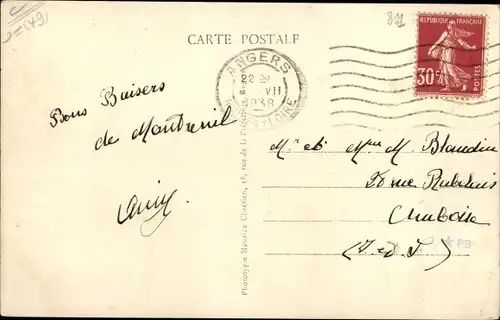 (49)
831
CARTE POSTALE
ANGERS
22
VII
1938
REPUBLIQUE FRANÇAISE
30c
POSTES
Bons Baisers
de Montreuil
Mr et Mme M. Blandin
20 rue Rabelais
Amboise
(I. et L.)
PB
Phototypie Maurice Chrétien, 18, rue de la Préfecture